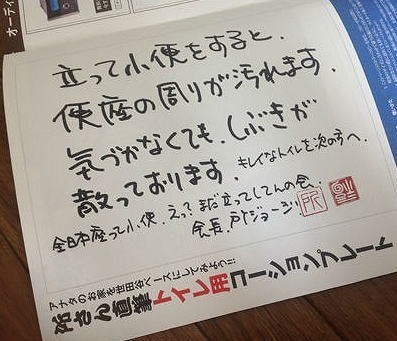 立って小便をすると、
便座の周りが汚れます。
気づかなくても、しぶきが
散っております。キレイなトイレを次の方へ。
全日本座って小便、えっ?まだ立ってしてんの会。
会長 戸ジョージ 所
アナタのお家を世田谷ベースにしてみよう!!
所さん直筆トイレ用コーションプレート
オーディ